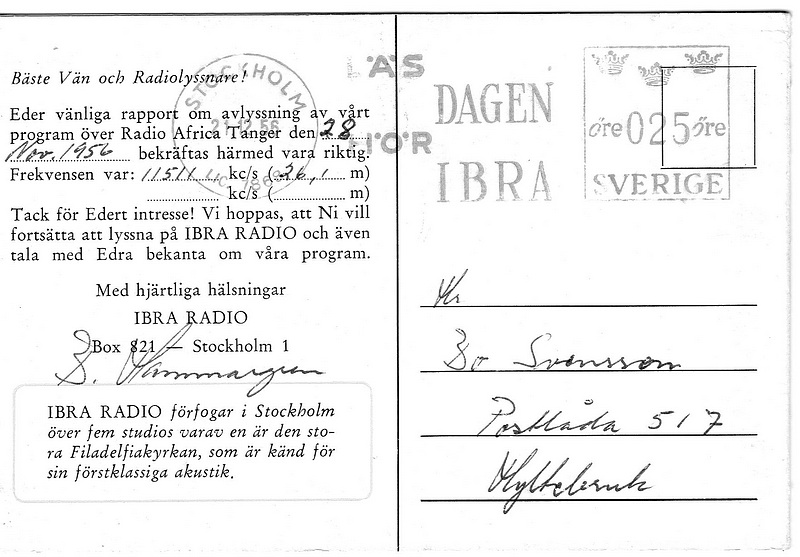 Bäste Vän och Radiolyssnare!
Eder vänliga rapport om avlyssning av vårt
program över Radio Africa Tanger den 28
Nov. 1956 bekräftas härmed vara riktig.
Frekvensen var: 11511 kc/s (26,1 m)
kc/s ( m)
Tack för Edert intresse! Vi hoppas, att Ni vill
fortsätta att lyssna på IBRA RADIO och även
tala med Edra bekanta om våra program.
Med hjärtliga hälsningar
IBRA RADIO
Box 821 — Stockholm 1
B. Hammargren
IBRA RADIO förfogar i Stockholm
över fem studios varav en är den sto-
ra Filadelfiakyrkan, som är känd för
sin förstklassiga akustik.
STOCKHOLM
12.56
LÄS
DAGEN
HÖR
IBRA
öre 025 öre
SVERIGE
Hr
Bo Svensson
Postlåda 517
Hyltebruk